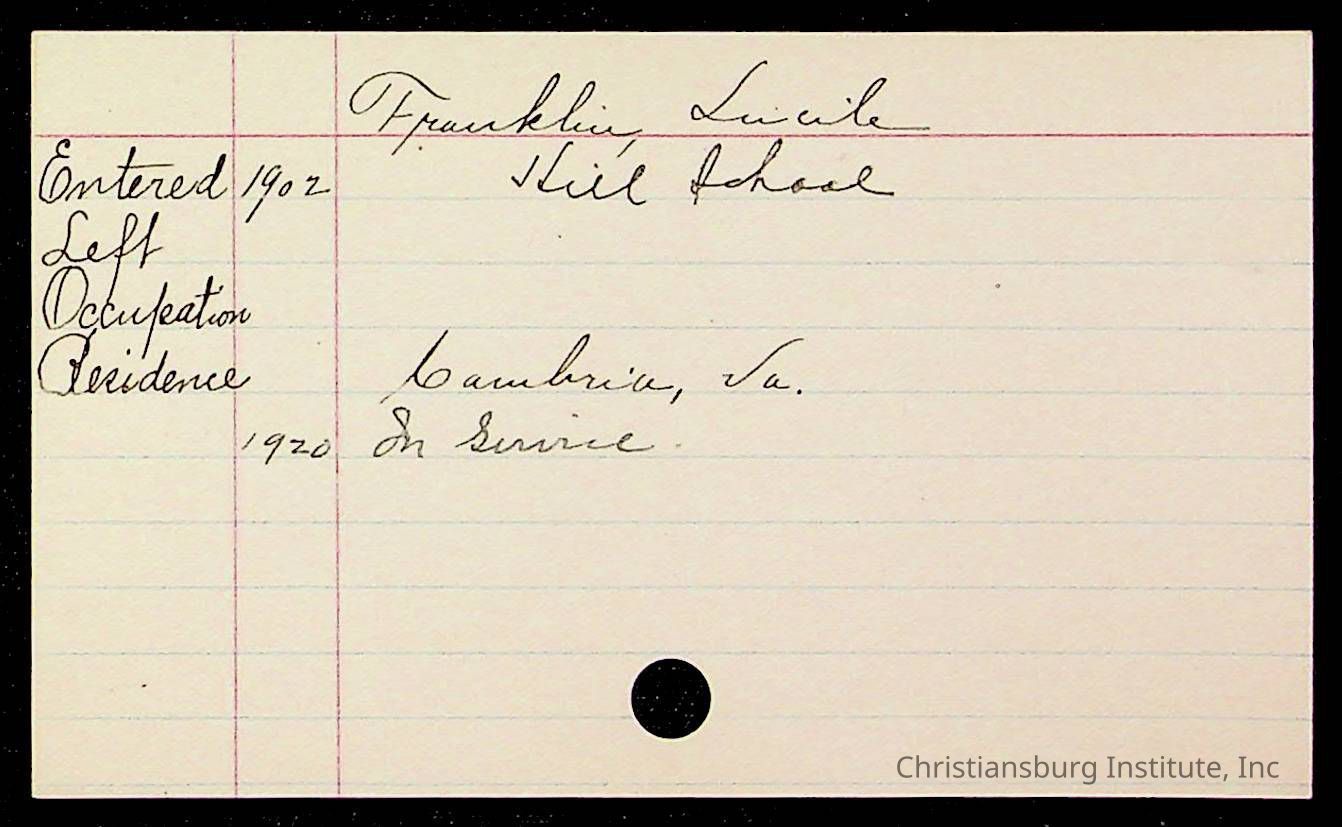 Franklin, Lucile
Entered 1902 Hill School
Left
Occupation
Residence Cambria, Va.
1920 In Service.
Christiansburg Institute, Inc